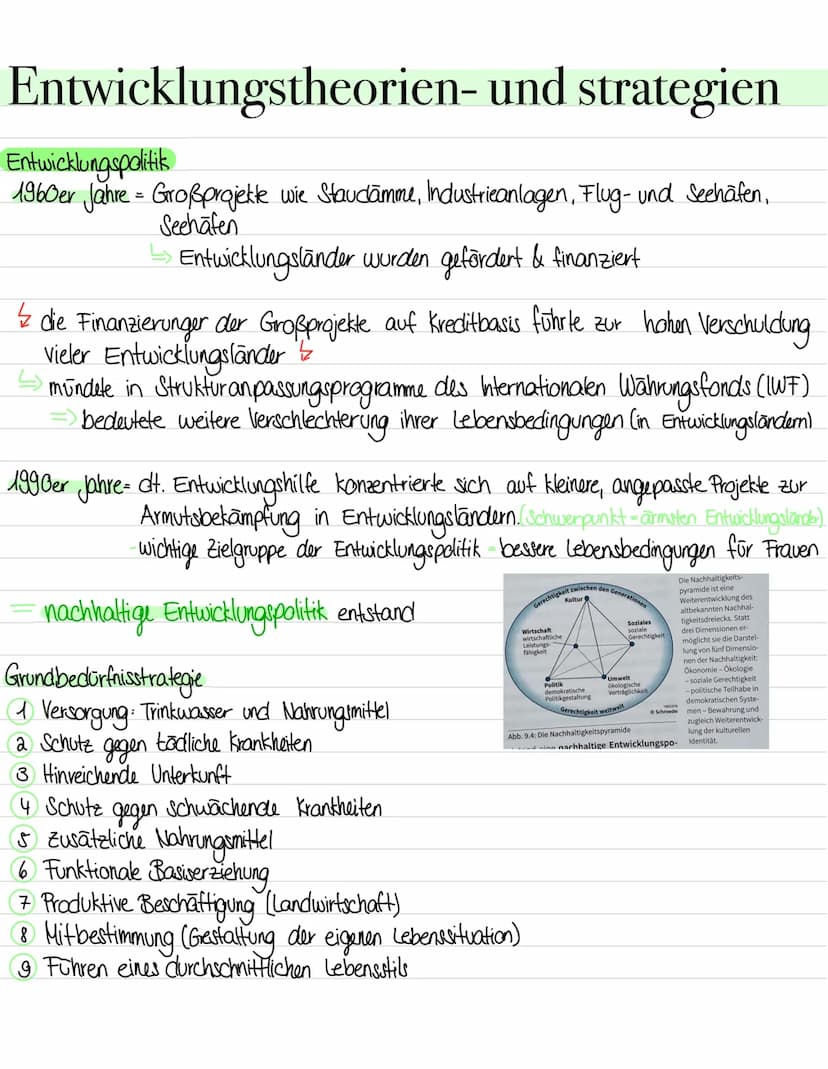 Entwicklungstheorien- und strategien
Entwicklungspolitik
1960er Jahre = Großprojekte wie Staudämme, Industrieanlagen, Flug- und Seehäfen,
Seehäfen
↳ Entwicklungsländer wurden gefördert & finanziert
↯ die Finanzierunger der Großprojekte auf Kreditbasis führte zur hohen Verschuldung
vieler Entwicklungsländer ↯
↳ mündete in Strukturanpassungsprogramme des Internationalen Währungsfonds (IWF)
=> bedeutete weitere Verschlechterung ihrer Lebensbedingungen (in Entwicklungsländern)
1990er Jahre= dt. Entwicklungshilfe konzentrierte sich auf kleinere, angepasste Projekte zur
Armutsbekämpfung in Entwicklungsländern. (Schwerpunkt = ärmsten Entwicklungsländer)
-wichtige Zielgruppe der Entwicklungspolitik - bessere Lebensbedingungen für Frauen
= nachhaltige Entwicklungspolitik entstand
Gerechtigkeit zwischen den Generationen
Kultur
Wirtschaft
wirtschaftliche
Leistungs-
fähigkeit
Soziales
soziale
Gerechtigkeit
Politik
demokratische
Politikgestaltung
Umwelt
ökologische
Verträglichkeit
Gerechtigkeit weltweit
© Schroedel
Abb. 9.4: Die Nachhaltigkeitspyramide
eine nachhaltige Entwicklungspo-
Die Nachhaltigkeits-
pyramide ist eine
Weiterentwicklung des
altbekannten Nachhal-
tigkeitsdreiecks. Statt
drei Dimensionen er-
möglicht sie die Darstel-
lung von fünf Dimensio-
nen der Nachhaltigkeit:
Ökonomie – Ökologie
– soziale Gerechtigkeit
– politische Teilhabe in
demokratischen Syste-
men – Bewahrung und
zugleich Weiterentwick-
lung der kulturellen
Identität.
Grundbedürfnisstrategie
1 Versorgung: Trinkwasser und Nahrungsmittel
2 Schutz gegen tödliche Krankheiten
3 Hinreichende Unterkunft
4 Schutz gegen schwächende Krankheiten
5 Zusätzliche Nahrungsmittel
6 Funktionale Basiserziehung
7 Produktive Beschäftigung (Landwirtschaft)
8 Mitbestimmung (Gestaltung der eigenen Lebenssituation)
9 Führen eines durchschnittlichen Lebensstils